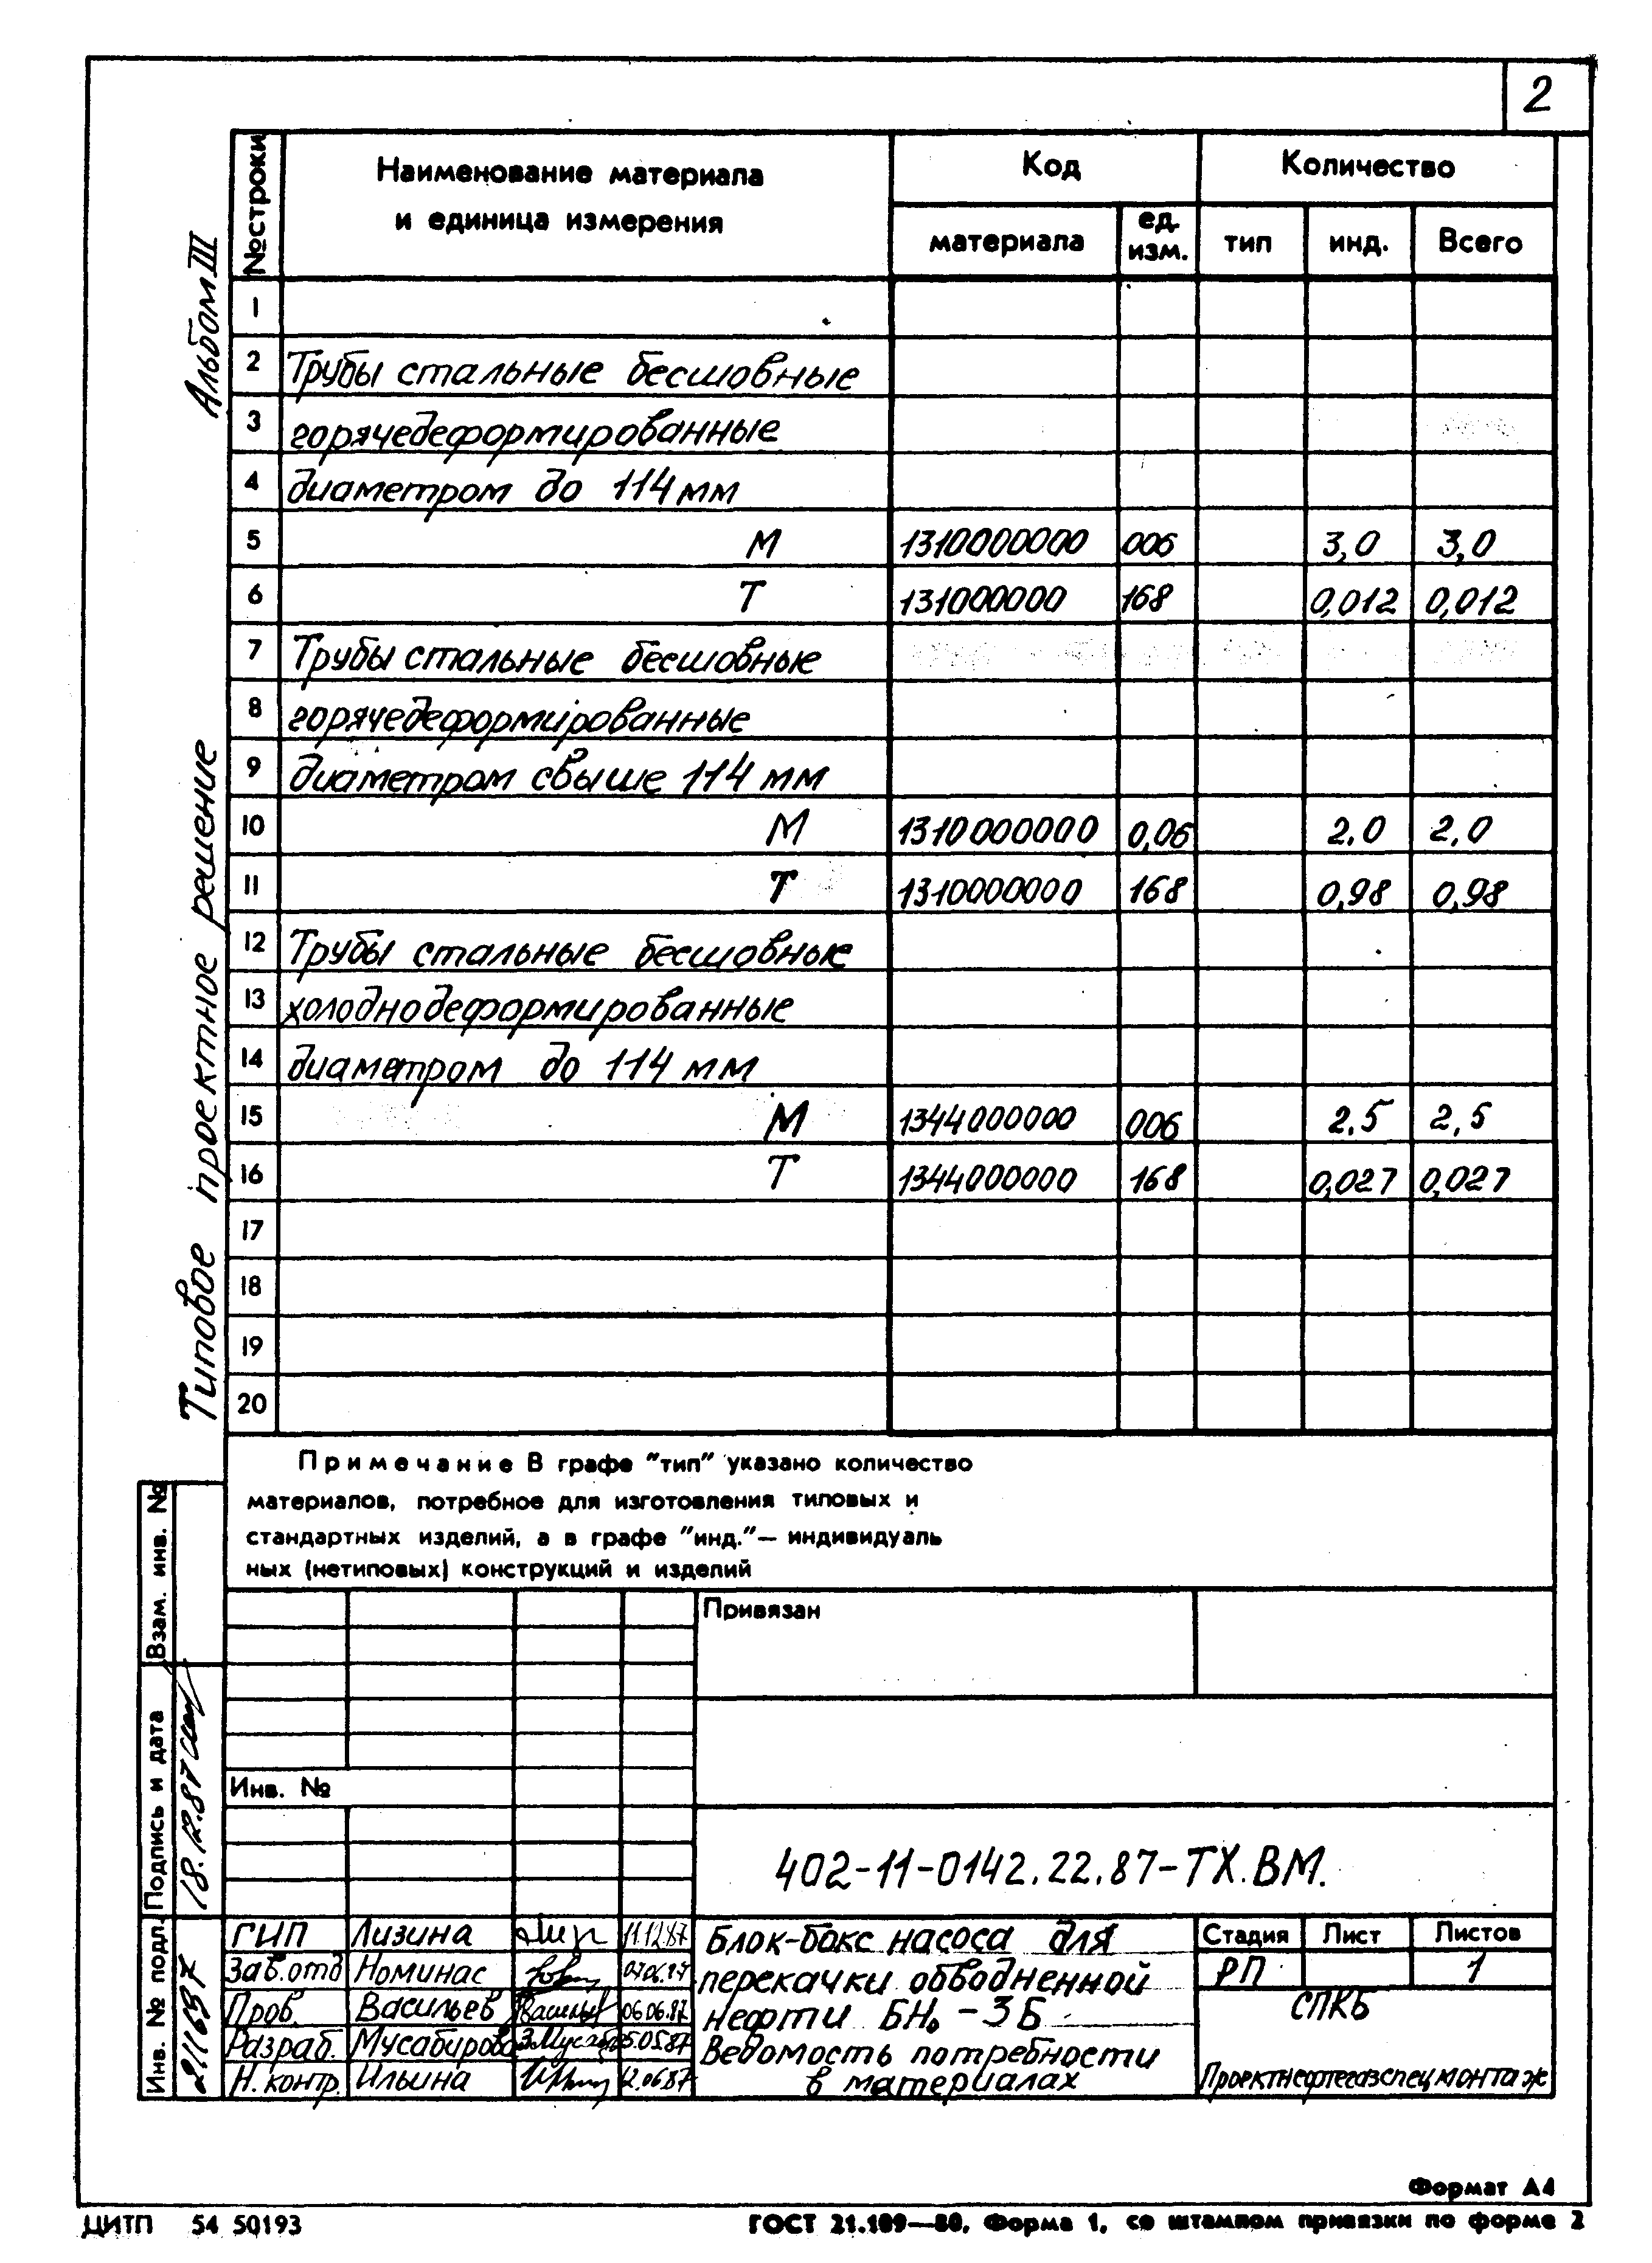 2
№ строки
Наименование материала
и единица измерения
Код
Количество
материала
ед. изм.
тип
инд.
Всего
1
2 Трубы стальные бесшовные
3 горячедеформированные
4 диаметром до 114 мм
5 М 1310000000 006 3,0 3,0
6 Т 131000000 168 0,012 0,012
7 Трубы стальные бесшовные
8 горячедеформированные
9 диаметром свыше 114 мм
10 М 1310000000 0,06 2.0 2,0
11 Т 1310000000 168 0,98 0,98
12 Трубы стальные бесшовные
13 холоднодеформированные
14 диаметром до 114 мм
15 М 1344000000 006 2.5 2,5
16 Т 1344000000 168 0,027 0,027
17
18
19
20
Альбом III
Типовое проектное решение
Примечание В графе "тип" указано количество
материалов, потребное для изготовления типовых и
стандартных изделий, а в графе "инд."— индивидуаль
ных (нетиповых) конструкций и изделий
Привязан
Инв. №
402-11-0142.22.87-ТХ.ВМ.
ГИП Лизина 11.12.87
Зав.отд Номинас
Пров. Васильев 06.06.87
Разраб. Мусабирова
Н.контр. Ильина 12.06.87
Блок-бокс насоса для
перекачки обводненной
нефти БН₀-3Б
Ведомость потребности
в материалах
Стадия Лист Листов
РП 1
СПКБ
Проектнефтегазспецмонтаж
Взам. инв. №
Подпись и дата
18.12.87
Инв. № подл.
Формат А4
ЦИТП 54 50193
ГОСТ 21.109—80, Форма 1, со штампом привязки по форме 2